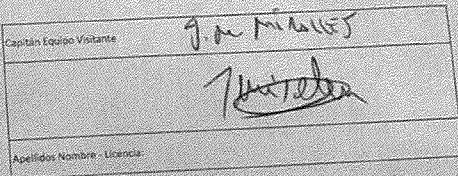 Capitán Equipo Visitante J. M MIRALLES
Apellidos Nombre - Licencia: